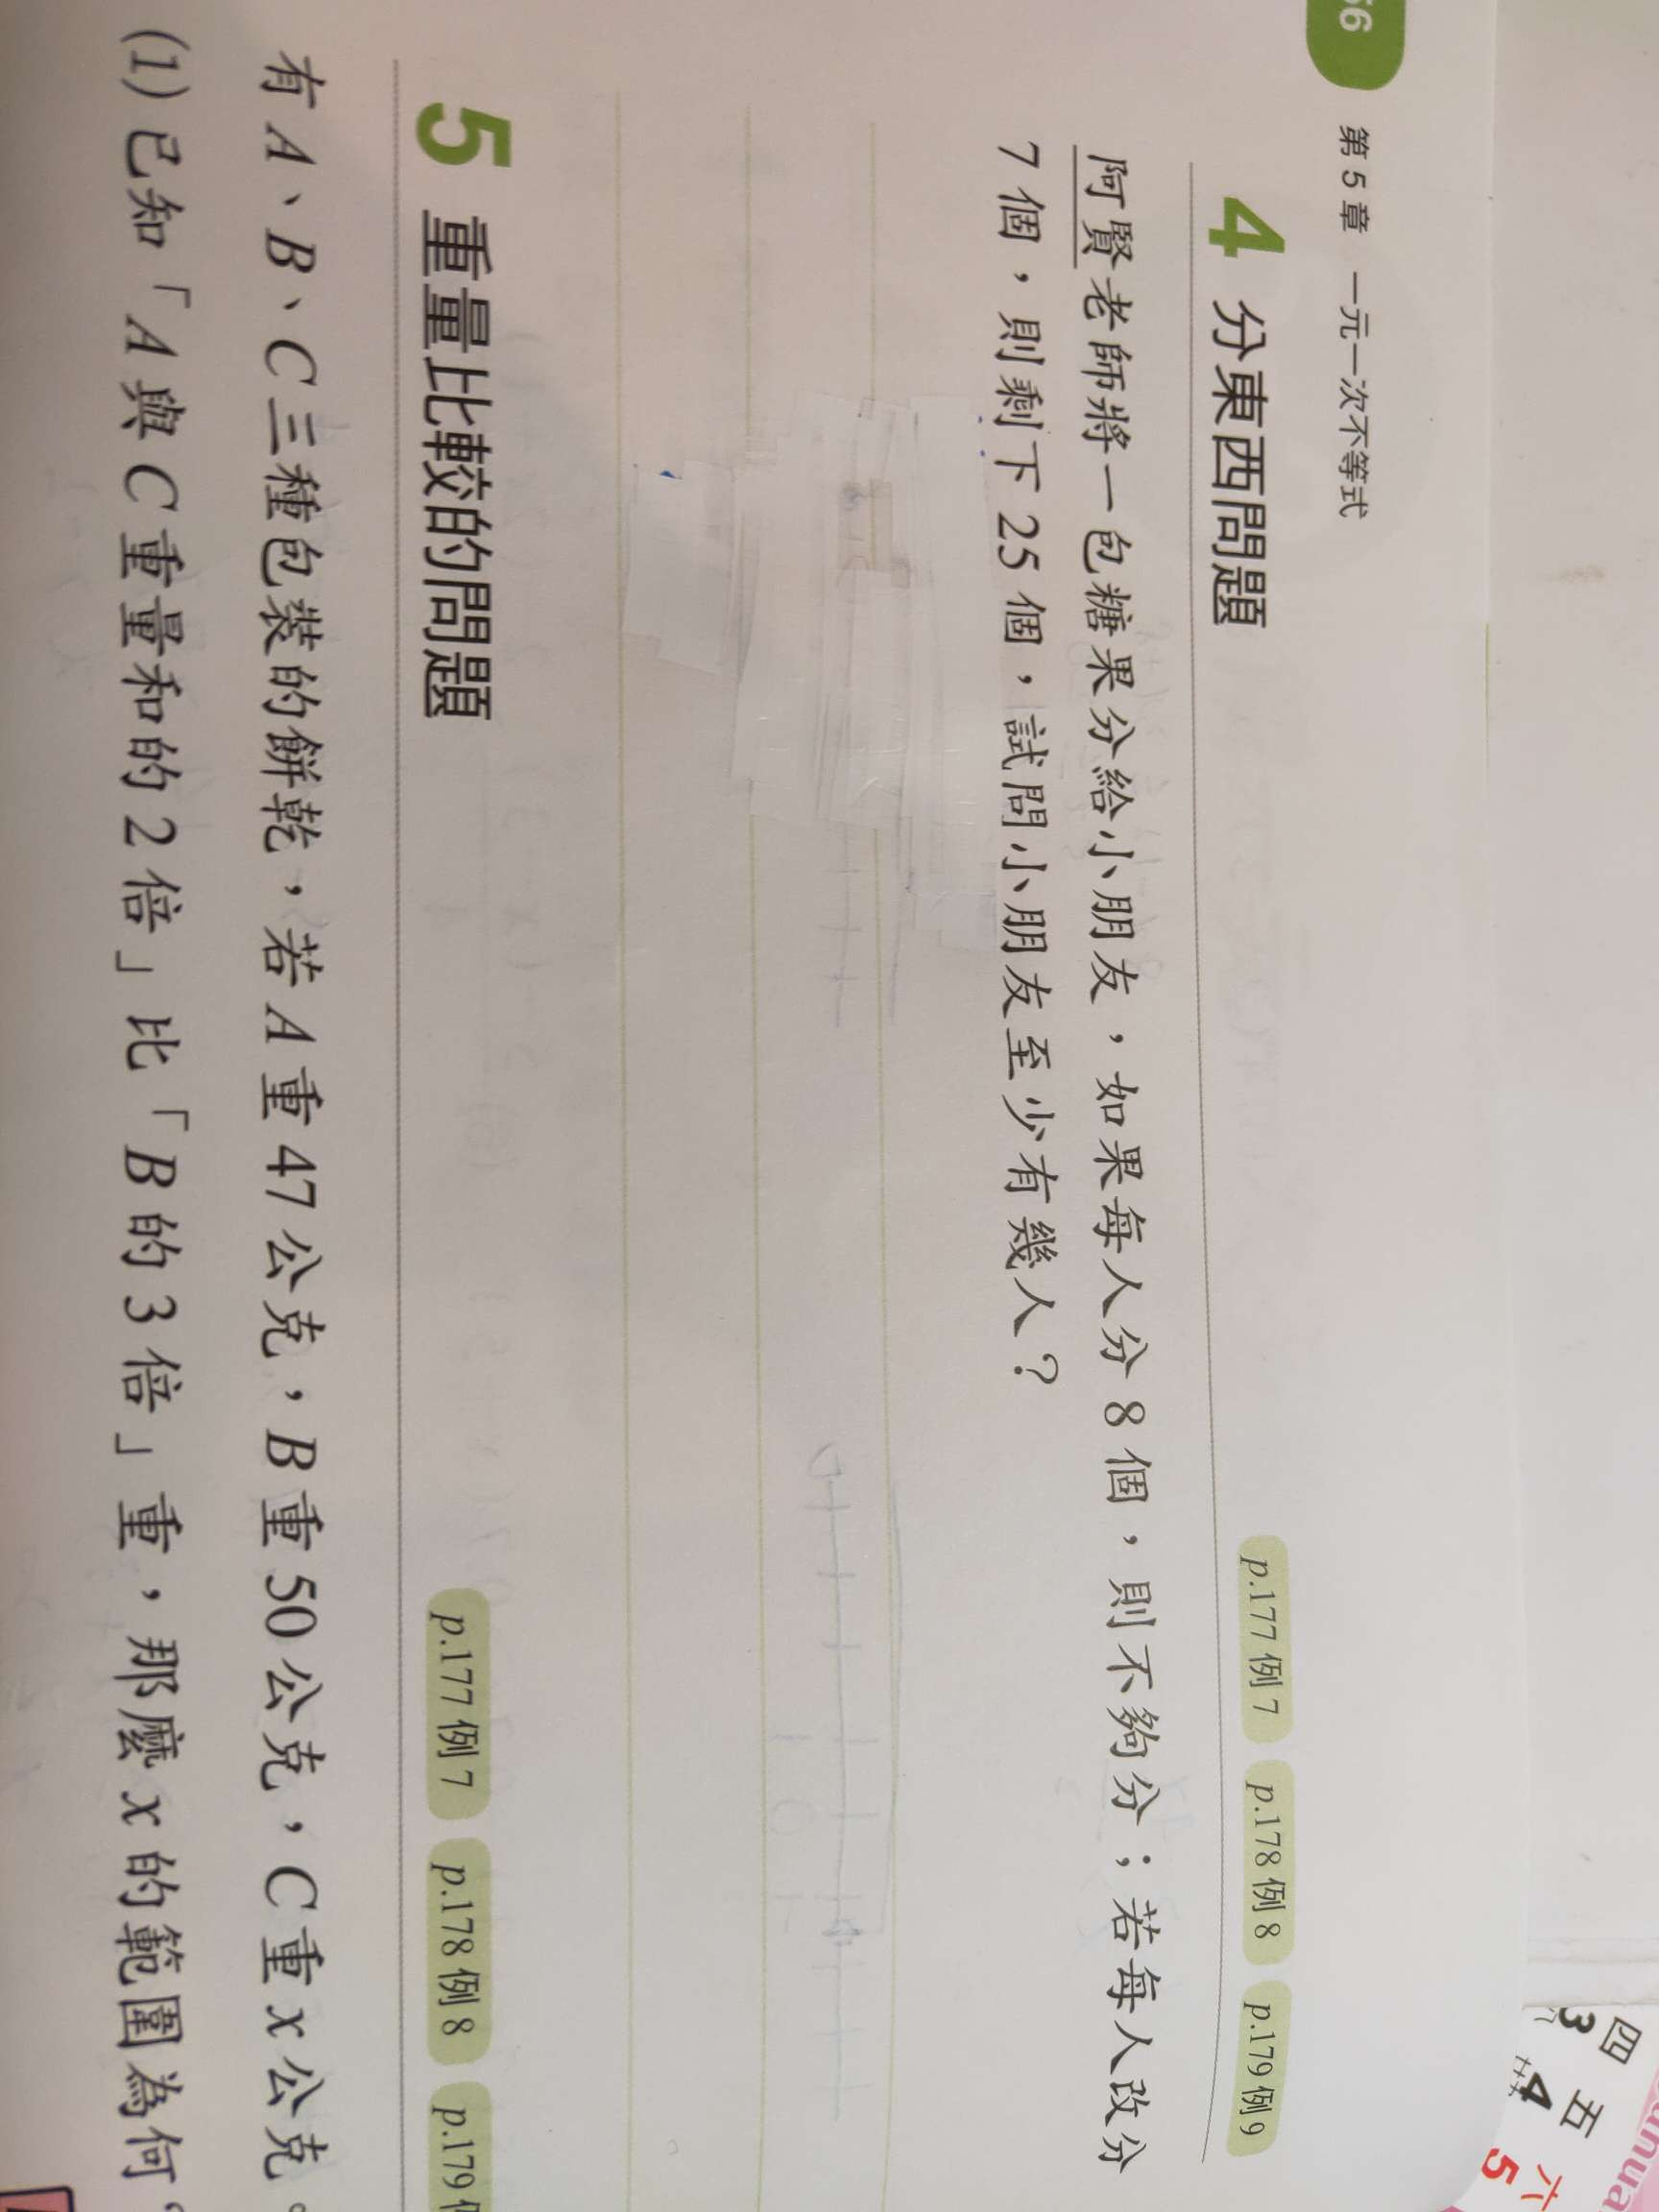 66
第5章 一元一次不等式
4 分東西問題 p.177例7 p.178例8 p.179例9
阿賢老師將一包糖果分給小朋友,如果每人分8個,則不夠分;若每人改分
7個,則剩下25個,試問小朋友至少有幾人?
5 重量比較的問題 p.177例7 p.178例8 p.179
有A、B、C三種包裝的餅乾,若A重47公克,B重50公克,C重x公克。
(1)已知「A與C重量和的2倍」比「B的3倍」重,那麼x的範圍為何
四 五 六
3 4 5